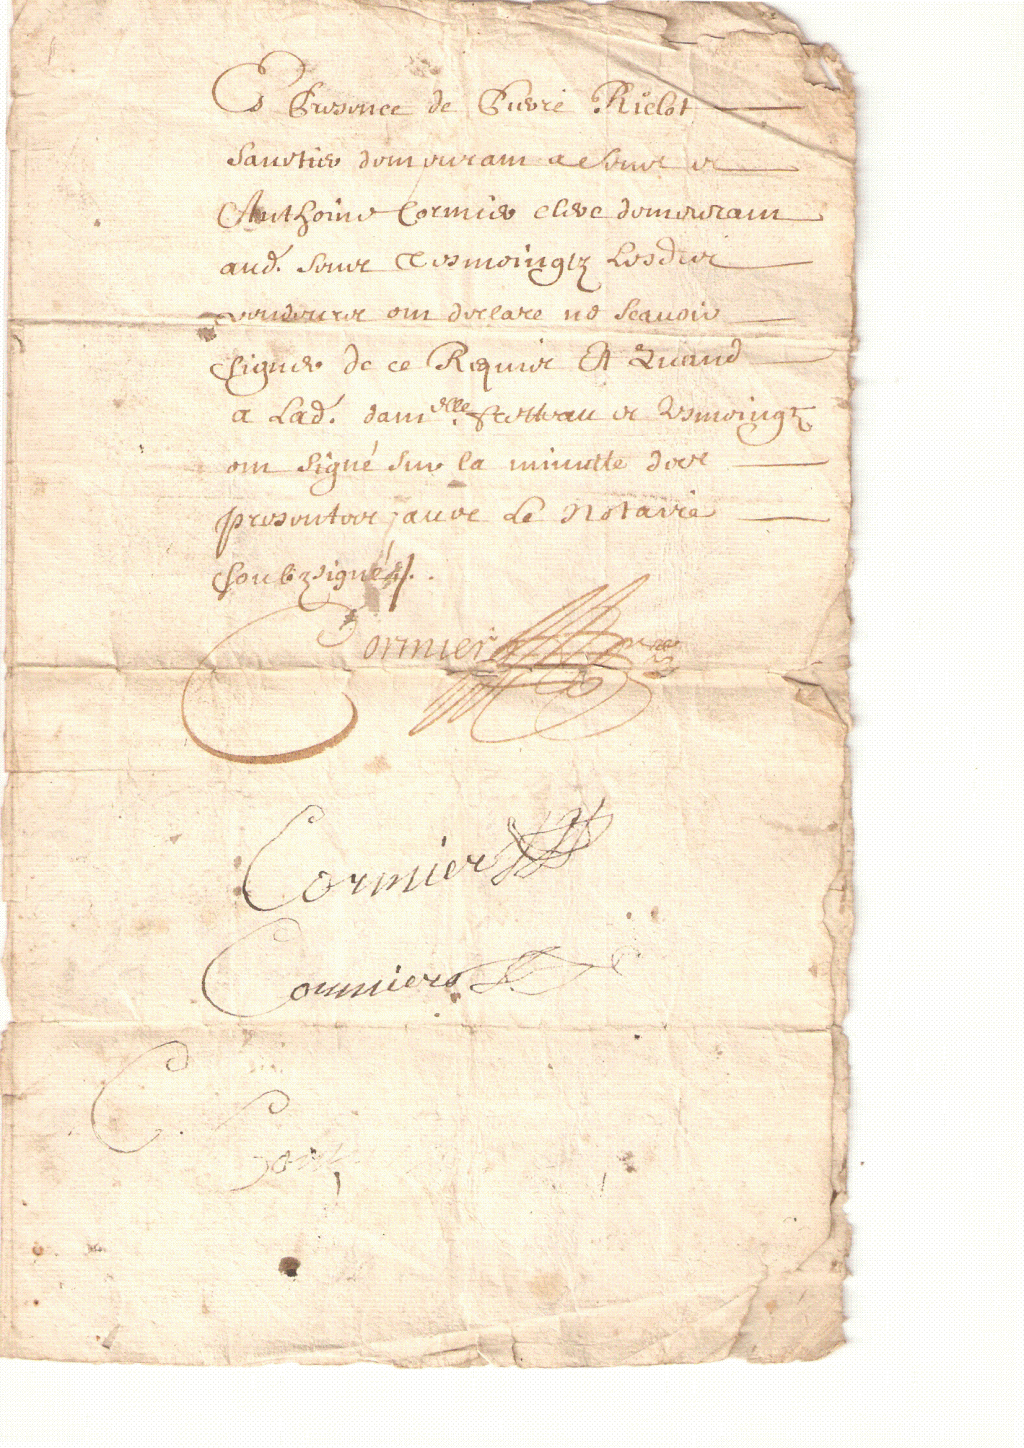 Presence de Pierre Rielot
demourant a
Anthoine Cormier clerc demourant
aud. tesmoingz Lesd.
vendeurs ont declaré ne scavoir
signer de ce Requis Et quand
a Lad. dam.elle et tesmoingz
ont signé sur la minutte des
presentes avec Le Notaire
soubzsigné
Cormier
Cormier
Cormier